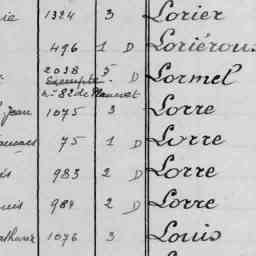 1324 3 Lorier
496 1 D Loriérous
2038 5 D Lormel
Exempté
n° 82 de Plancoët
Jean 1075 3 Lorre
75 1 D Lorre
983 2 D Lorre
984 2 D Lorre
1076 3 Louis